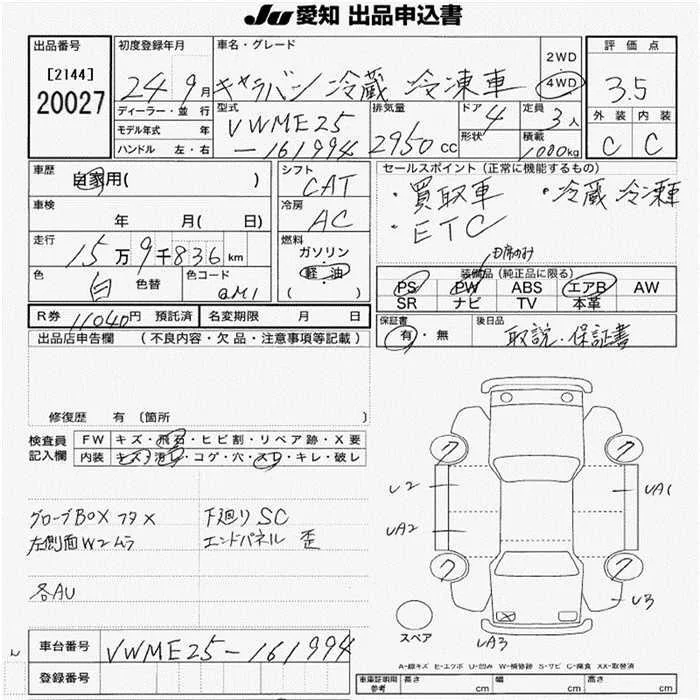 JU 愛知 出品申込書
出品番号
[2144]
20027
初度登録年月
24 9月
車名・グレード
キャラバン 冷蔵 冷凍車
2WD
4WD
評価点
3.5
外装 内装
C C
ディーラー・並行
モデル年式 年
ハンドル 左・右
型式
VWME25
-161994
排気量
2950cc
ドア 4
形状
定員
3人
積載
1000kg
車歴
自家用( )
車検
年 月( 日)
走行
15万9千836km
色
白
色替
色コード
QM1
シフト
CAT
冷房
AC
燃料
ガソリン
軽・油
( )
セールスポイント (正常に機能するもの)
・買取車 ・冷蔵冷凍車
・ETC
装備品(純正品に限る)
PS PW ABS エアB AW
SR ナビ TV 本革
R券 11040円 預託済
名変期限 月 日
保証書
有・無
後日品
取説・保証書
出品店申告欄 (不良内容・欠品・注意事項等記載)
修復歴 有(箇所 )
検査員
記入欄
FW キズ・飛石・ヒビ割・リペア跡・X要
内装 キズ・汚レ・コゲ・穴・スレ・キレ・破レ
グローブBOXフタX
左側面W2ムラ
各AU
下廻りSC
エンドパネル 歪
7 7
U2
UA1
UA2
7 7
U3
UA3
スペア
車台番号
VWME25-161994
登録番号
A-線キズ E-エクボ U-凹み W-補修跡 S-サビ C-腐食 XX-取替済
車庫証明用
参考
長さ cm 幅 cm 高さ cm